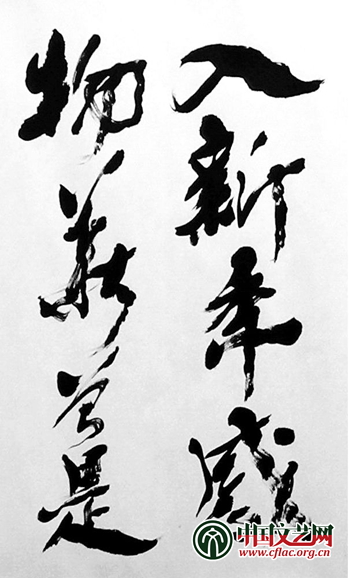 入新年感
物是
中国文艺网
www.cflac.org.cn